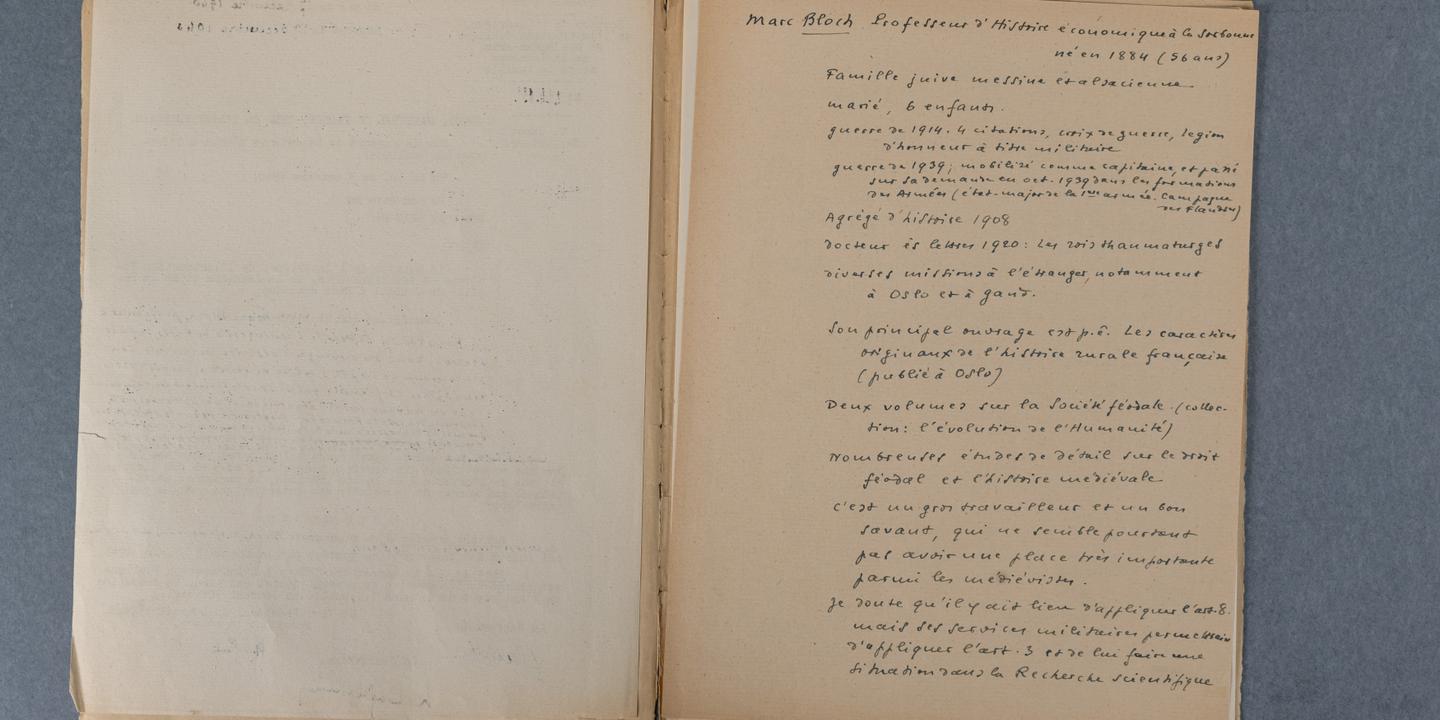 Marc Bloch Professeur d'Histoire économique à la Sorbonne
né en 1884 (56 ans)
Famille juive messine et alsacienne
marié, 6 enfants.
guerre de 1914. 4 citations, croix de guerre, legion
d'honneur à titre militaire
guerre de 1939; mobilisé comme capitaine, et passé
sur sa demande en oct. 1939 dans les formations
des Armées (état-major de la 1ère armée. Campagne
des Flandres)
Agrégé d'histoire 1908
docteur ès lettres 1920: Les rois thaumaturges
diverses missions à l'étranger, notamment
à Oslo et à Gand.
Son principal ouvrage est p.ê. Les caractères
originaux de l'histoire rurale française
(publié à Oslo)
Deux volumes sur la Société féodale. (collec-
tion: l'évolution de l'Humanité)
Nombreuses études de détail sur le droit
féodal et l'histoire médiévale
C'est un gros travailleur et un bon
savant, qui ne semble pourtant
pas avoir une place très importante
parmi les médiévistes.
Je doute qu'il y ait lieu d'appliquer l'art. 8.
mais ses services militaires permettraient
d'appliquer l'art. 3 et de lui faire une
situation dans la Recherche scientifique